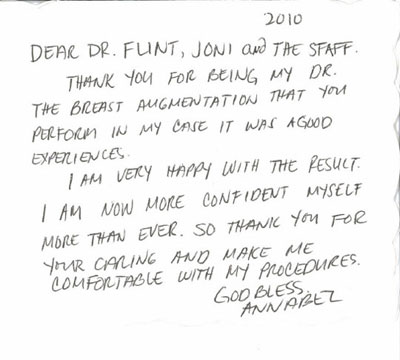 2010
DEAR DR. FLINT, JONI and THE STAFF.
THANK YOU FOR BEING MY DR.
THE BREAST AUGMENTATION THAT YOU
PERFORM IN MY CASE IT WAS A GOOD
EXPERIENCES.
I AM VERY HAPPY WITH THE RESULT.
I AM NOW MORE CONFIDENT MYSELF
MORE THAN EVER. SO THANK YOU FOR
YOUR CARING AND MAKE ME
COMFORTABLE WITH MY PROCEDURES.
GOD BLESS,
ANNABEZ